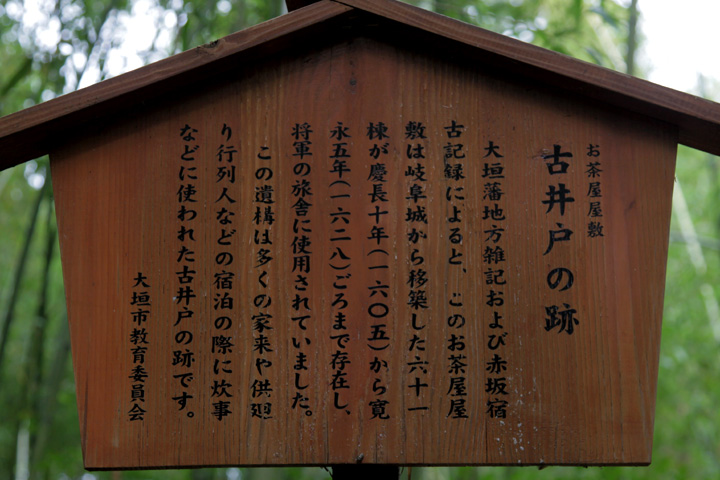 お茶屋屋敷
古井戸の跡
大垣藩地方雑記および赤坂宿
古記録によると、このお茶屋屋
敷は岐阜城から移築した六十一
棟が慶長十年(一六〇五)から寛
永五年(一六二八)ごろまで存在し、
将軍の旅舎に使用されていました。
この遺構は多くの家来や供廻
り行列人などの宿泊の際に炊事
などに使われた古井戸の跡です。
大垣市教育委員会